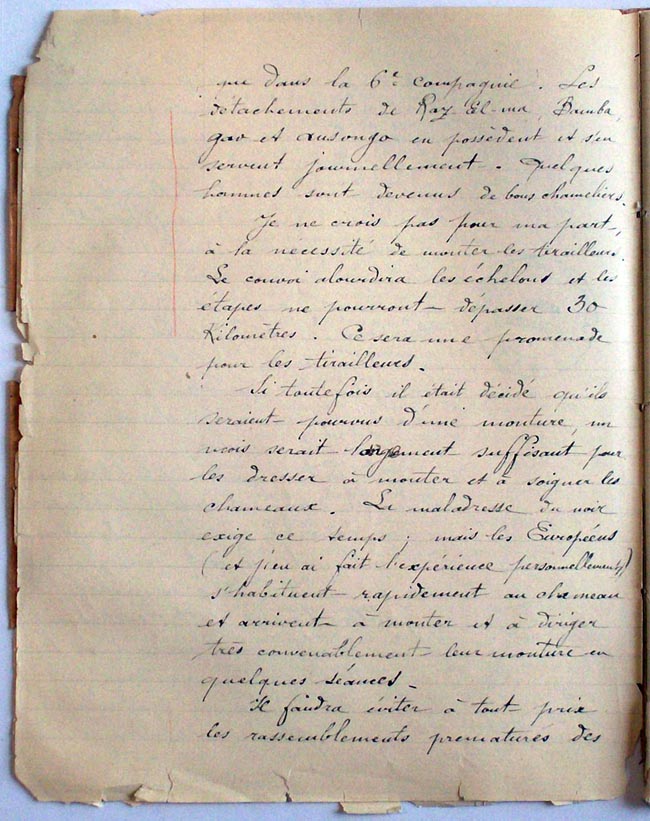 que dans la 6e compagnie. Les
détachements de Raz El-ma, Bamba,
gao et ansongo en possèdent et s'en
servent journellement. Quelques
hommes sont devenus de bons chameliers.
Je ne crois pas pour ma part,
à la nécessité de monter les tirailleurs.
Le convoi alourdira les échelons et les
étapes ne pourront dépasser 30
Kilomètres. Ce sera une promenade
pour les tirailleurs.
Si toutefois il était décidé qu'ils
seraient pourvus d'une monture, un
mois serait largement suffisant pour
les dresser à monter et à soigner les
chameaux. La maladresse du noir
exige ce temps; mais les Européens
(et j'en ai fait l'expérience personnellement)
s'habituent rapidement au chameau
et arrivent à monter et à diriger
très convenablement leur monture en
quelques séances.
Il faudra éviter à tout prix
les rassemblements prématurés des